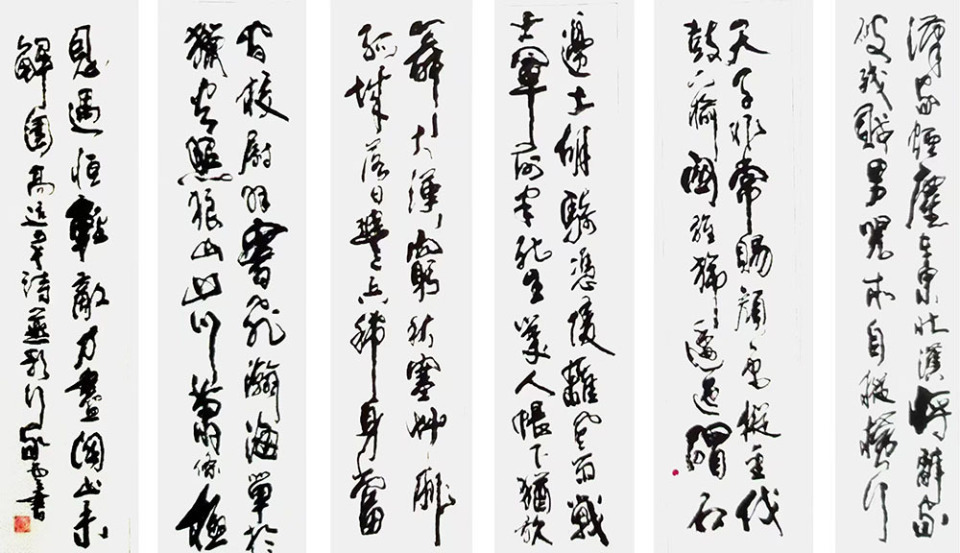 漢家煙塵在東北漢將辭家
破殘賊男兒本自縱橫行
天子非常賜顏色摐金伐
鼓下榆關旌旆逶迤碣石
邊土胡騎憑陵雜風雨戰
士軍前半死生美人帳下猶歌
舞大漠窮秋塞草腓
孤城落日鬥兵稀身當
恩遇恒輕敵力盡關山未
解圍高適詩燕歌行書
皆校尉羽書飛瀚海單于
獵火照狼山山川蕭條極